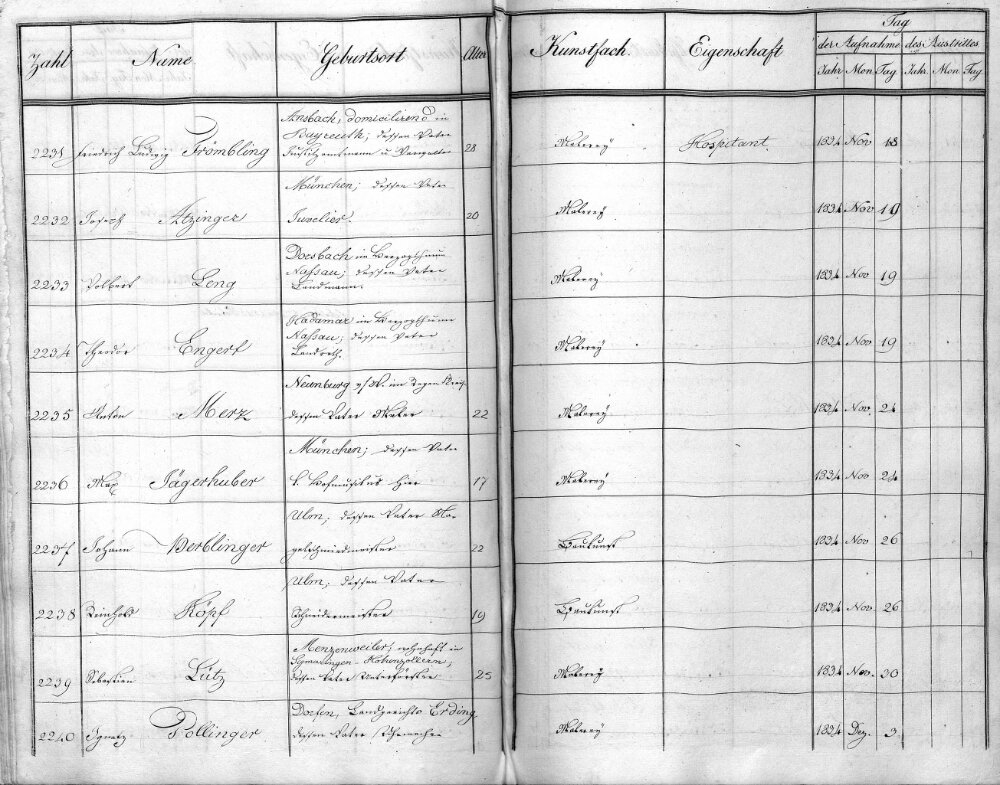 Tag
Zahl Name Geburtsort Alter Kunstfach. Eigenschaft der Aufnahme des Austrittes
Jahr Mon Tag Jahr. Mon Tag
Ansbach, domicilirend in
Bayreuth; dessen Vater
2231 Friedrich Ludwig Frömbling Justizamtmann u Verwalter 28 Malerey Hospitant. 1834 Nov 18
München; dessen Vater
2232 Joseph Atzinger Juvelier. 20 Malerey 1834 Nov 19
Doesbach im Herzogthum
Nassau; dessen Vater
2233 Volbert Leng Landmann. Malerey 1834 Nov 19
Hadamar im Herzogthume
Nassau; dessen Vater
2234 Theodor Engert Landrath. Malerey 1834 Nov 19
Neunburg v/W. im Regen Kreis
2235 Anton Merz dessen Vater Maler 22 Malerey 1834 Nov. 24
München; dessen Vater
2236 Max Jägerhuber k Hofmusikus hier 17 Malerey 1834 Nov 24
Ulm, dessen Vater Na-
2237 Johann Berblinger gelschmiedmeister 22 Baukunst 1834 Nov 26
Ulm; dessen Vater
2238 Reinhold Köpf Schneidermeister 19 Baukunst 1834 Nov. 26
Menzenweiler, wohnhaft in
Sigmaringen-Hohenzollern;
2239 Sebastian Lutz dessen Vater Unterförster 25 Malerey 1834 Nov. 30
Dorfen, Landgerichts Erding
2240 Ignatz Pollinger dessen Vater Uhrmacher Malerey 1834 Dez. 3